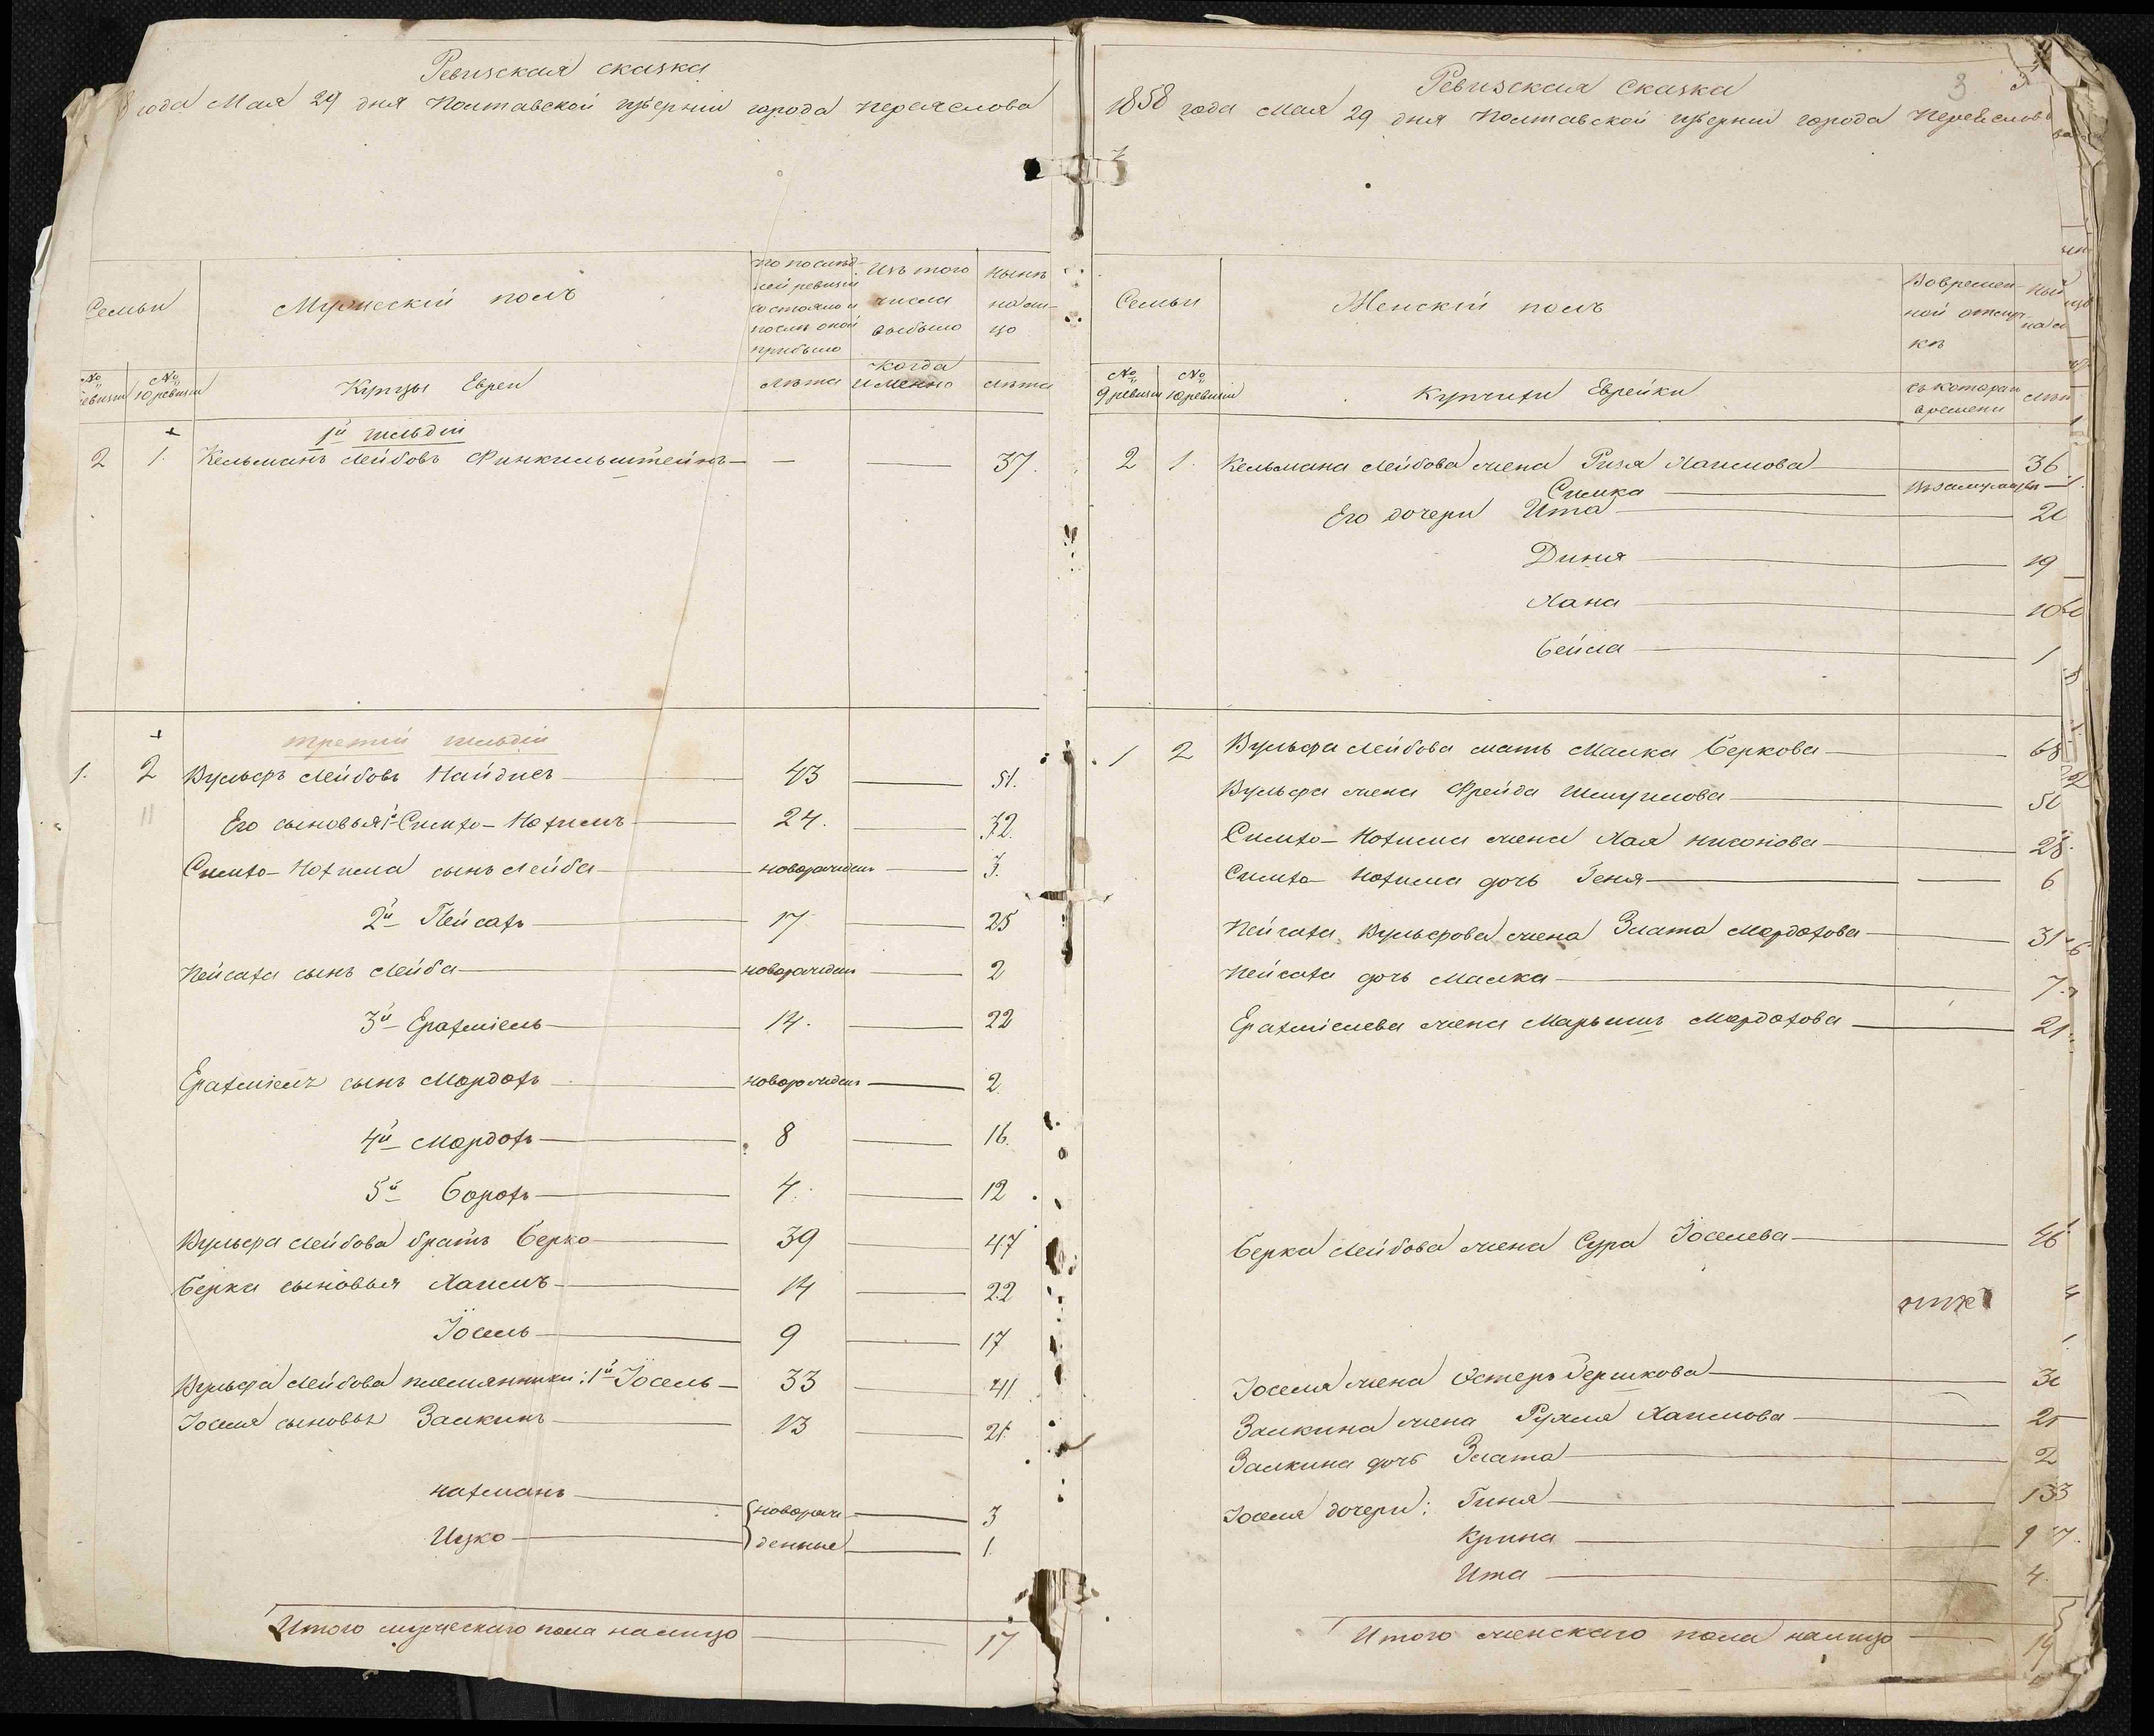 Ревизская сказка
8 года Мая 29 дня Полтавской губерніи города Переяслова
Семьи
Мужескій полъ
по послѣд-
ней ревизіи
состояло и
послѣ оной
прибыло
Изъ того
числа
выбыло
нынѣ
на ли-
цо
№ ревизіи
№ 10 ревизіи
Купцы Евреи
лѣта
когда
именно
лѣта
1й гильдіи
2 1. Кельманъ Лейбовъ Финкильштейнъ — — 37.
третій гильдіи
1. 2 Вульфъ Лейбовъ Найдисъ 43 — 51.
11
Его сыновья 1й Симхо-Нохимъ 24. — 32.
Симхо-Нохима сынъ Лейба новорожден — 3.
2й Пейсахъ 17 — 25
Пейсаха сынъ Лейба новорожден — 2
3й Ерахміель 14. — 22
Ерахміелъ сынъ Мордохъ новорожден — 2.
4й Мордохъ 8 — 16.
5й Борохъ 4. — 12
Вульфа Лейбова братъ Берко 39 — 47
Берка сыновья Хаимъ 14 — 22
Іосель 9 — 17
Вульфа Лейбова племянники: 1й Іосель 33 — 41
Іоселя сыновья Залкинъ 13 — 21.
Нахманъ новорож — 3
Ицко денные — 1.
Итого мужескаго пола налицо 17
Ревизская Сказка
3
1858 года Мая 29 дня Полтавской губерніи города Переяслов
Семьи
Женскій полъ
Во времен-
ной отлуч-
кѣ
№ 9 ревизіи
№ 10 ревизіи
Купчихи Еврейки
съ котораго
времени
2 1. Кельмана Лейбова жена Риза Хаимова 36
Симка взамужествѣ
Его дочери Ита 20
Диня 19
Хана 10
Бейла 1
1 2 Вульфа Лейбова мать Малка Беркова 68
Вульфа жена Фрейда Шмуилова 50
Симхо-Нохима жена Хая 28
Симхо Нохима дочь Геня 6
Пейсаха Вульфова жена Злата Мордохова 31
Пейсаха дочь Малка 7
Ерахміелева жена Марьяшъ Мордохова 21.
Берка Лейбова жена Сура Іоселева 46
Іоселя жена Эстеръ Гершкова 30
Залкина жена Рухля Хаимова 21
Залкина дочь Злата 2
Іоселя дочери: Гиня 13
Крина 9
Ита 4.
Итого женскаго пола налицо 19